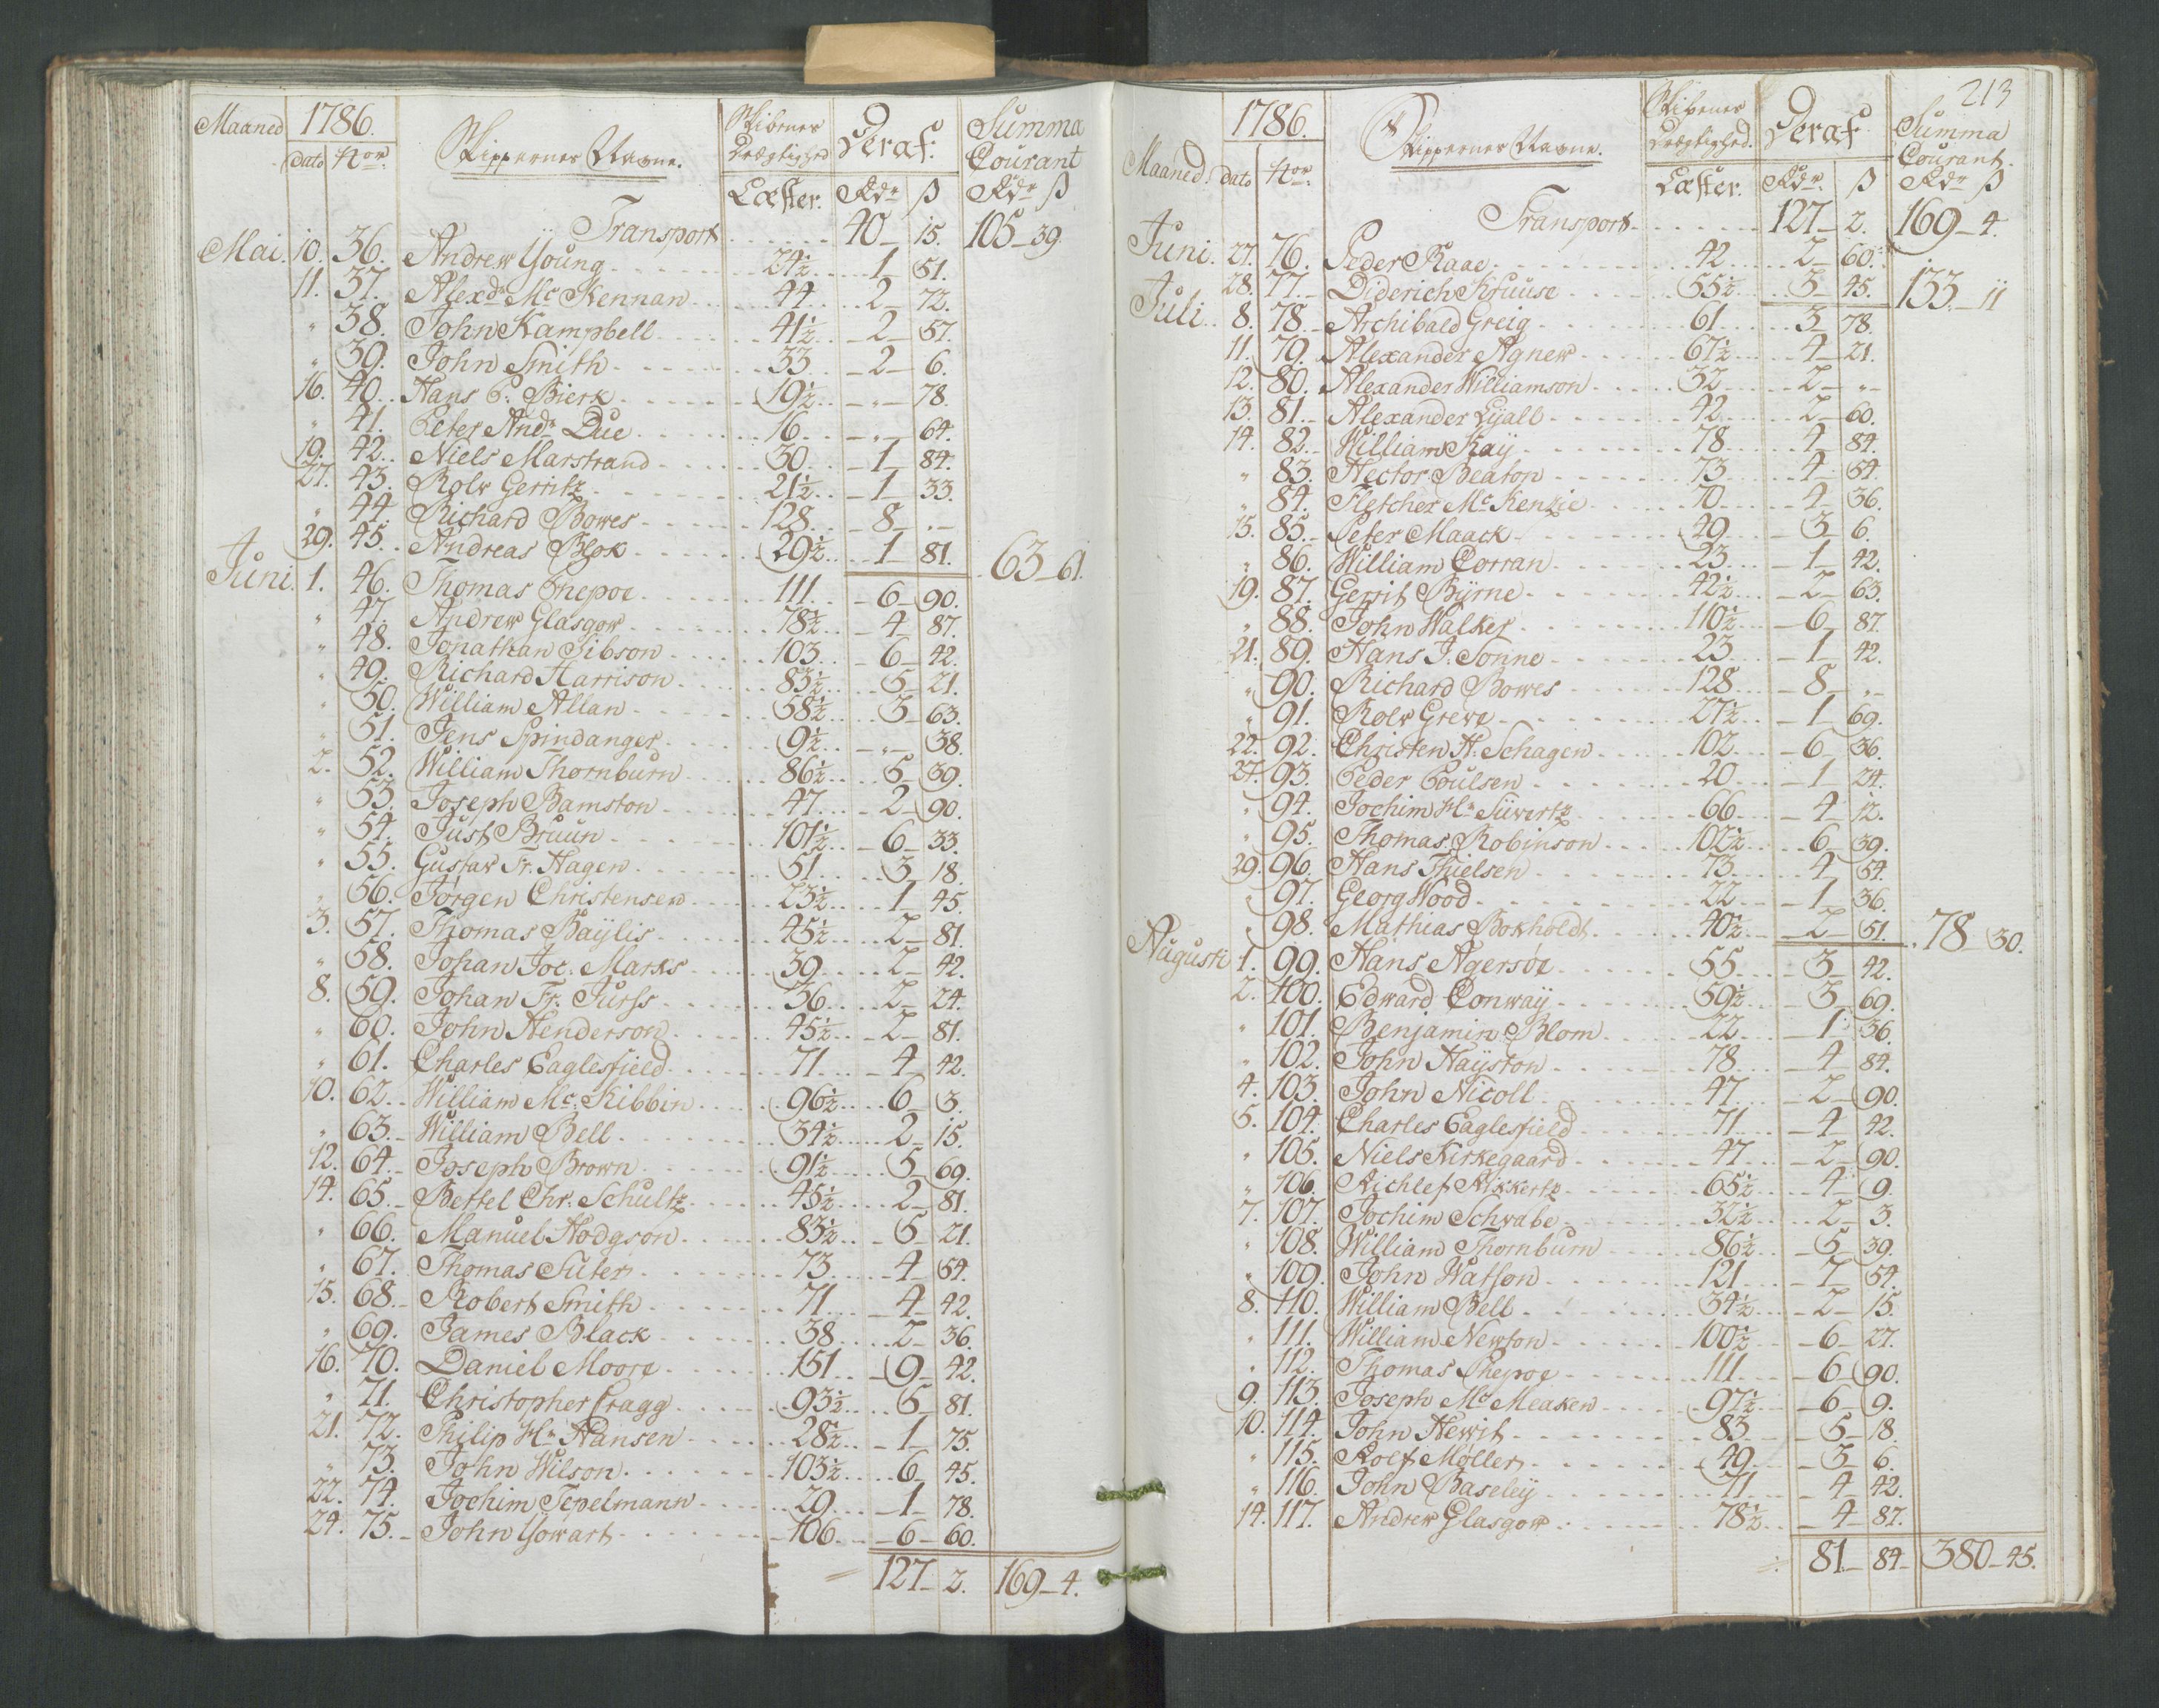 Maaned 1786. Skippernes Navne. Skibenes Drægtighed Deraf. Summa Courant
dato Nor. Læster. Rdr ß Rdr ß
Transport 40 15. 105 39.
Mai. 10. 36. Andrew Young 24½ 1 51.
11. 37. Alexdr Mc Kennan 44 2 72.
" 38. John Kampbell 41½ 2 57.
" 39. John Smith 33 2 6.
16. 40. Hans P. Bierk 19½ " 78.
" 41. Peter Andr Due 16 " 64.
19. 42. Niels Marstrand 30 1 84.
27. 43. Rolv Gerritz 21½ 1 33.
" 44. Richard Bowes 128 8 "
29. 45. Andreas Blok 29½ 1 81. 63 61.
Juni. 1. 46. Thomas Phepoe 111. 6 90.
" 47. Andrew Glasgow 78½ 4 87.
" 48. Jonathan Gibson 103 6 42.
" 49. Richard Harrison 83½ 5 21.
" 50. William Allan 58½ 3 63.
" 51. Jens Spindanger 9½ " 38.
2. 52. William Thornburn 86½ 5 39.
" 53. Joseph Bamston 47 2 90.
" 54. Just Bruun 101½ 6 33.
" 55. Gustav Fr. Hagen 51 3 18.
" 56. Jørgen Christensen 23½ 1 45.
3. 57. Thomas Baÿlis 45½ 2 81.
" 58. Johan Joc. Marks 39 2 42.
8. 59. Johan Fr. Jurss 36 2 24.
" 60. John Henderson 45½ 2 81.
" 61. Charles Eaglesfield 71 4 42.
10. 62. William Mc. Kibbin 96½ 6 3.
" 63. William Bell 34½ 2 15.
12. 64. Joseph Brown 91½ 5 69.
14. 65. Bettel Chr. Schultz 45½ 2 81.
" 66. Manuel Hodgson 83½ 5 21.
" 67. Thomas Suter 73 4 54.
15. 68. Robert Smith 71 4 42.
" 69. James Black 38 2 36.
16. 70. Daniel Moore 151 9 42.
" 71. Christopher Cragg 93½ 5 81.
21. 72. Philip Hn Hansen 28½ 1 75.
" 73. John Wilson 103½ 6 45.
22. 74. Jochim Tepelmann 29 1 78.
24. 75. John Yowart 106 6 60.
127 2. 169 4.
213
Maaned. 1786. Skippernes Navne. Skibenes Drægtighed. Deraf Summa Courant.
dato Nor. Læster. Rdr. ß Rdr ß
Transport 127 2. 169 4.
Juni. 27. 76. Peder Raae 42 2 60.
28. 77. Diderich Kruuse 55½ 3 45. 133 11
Juli. 8. 78. Archibald Greig 61 3 78.
11. 79. Alexander Agnew 67½ 4 21.
12. 80. Alexander Williamson 32 2 "
13. 81. Alexander Lyall 42 2 60.
14. 82. William Kaÿ 78 4 84.
" 83. Hector Beaton 73 4 54.
" 84. Fletcher Mc Kenzie 70 4 36.
15. 85. Peter Maack 49 3 6.
" 86. William Corran 23 1 42.
19. 87. Gerrit Bÿrne 42½ 2 63.
" 88. John Walker 110½ 6 87.
21. 89. Hans J. Sonne 23 1 42.
" 90. Richard Bowes 128 8 "
" 91. Rolv Greve 27½ 1 69.
22. 92. Christen H. Schagen 102 6 36.
27. 93. Peder Poulsen 20 1 24.
" 94. Jochim Hn Siivertz 66 4 12.
" 95. Thomas Robinson 102½ 6 39.
29. 96. Hans Thielsen 73 4 54.
" 97. Georg Wood 22 1 36.
" 98. Mathias Bokholdt 40½ 2 51. 78 30.
Augusti 1. 99. Hans Agersøe 55 3 42.
2. 100. Edward Conwaÿ 59½ 3 69.
" 101. Benjamin Blom 22 1 36.
" 102. John Haÿston 78 4 84.
4. 103. John Nicoll 47 2 90.
5. 104. Charles Eaglesfield 71 4 42.
" 105. Niels Kirkegaard 47 2 90.
" 106. Rickkertz 65½ 4 9.
7. 107. Jochim Schwabe 32½ 2 3.
" 108. William Thornburn 86½ 5 39.
" 109. John Watson 121 7 54.
8. 110. William Bell 34½ 2 15.
" 111. William Newton 100½ 6 27.
" 112. Thomas Phepoe 111 6 90.
9. 113. Joseph Mc Meaken 97½ 6 9.
10. 114. John Hewit 83 5 18.
" 115. Rolf Møller 49 3 6.
" 116. John Baseleÿ 71 4 42.
14. 117. Andrew Glasgow 78½ 4 87.
81 84 380 45.